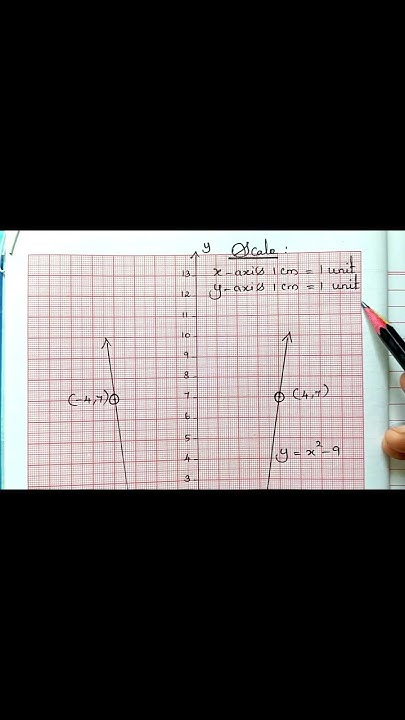 y
Scale:
x-axis 1 cm = 1 unit
y-axis 1 cm = 1 unit
13
12
11
10
9
8
7
6
5
4
3
(-4,7)
(4,7)
y = x²-9